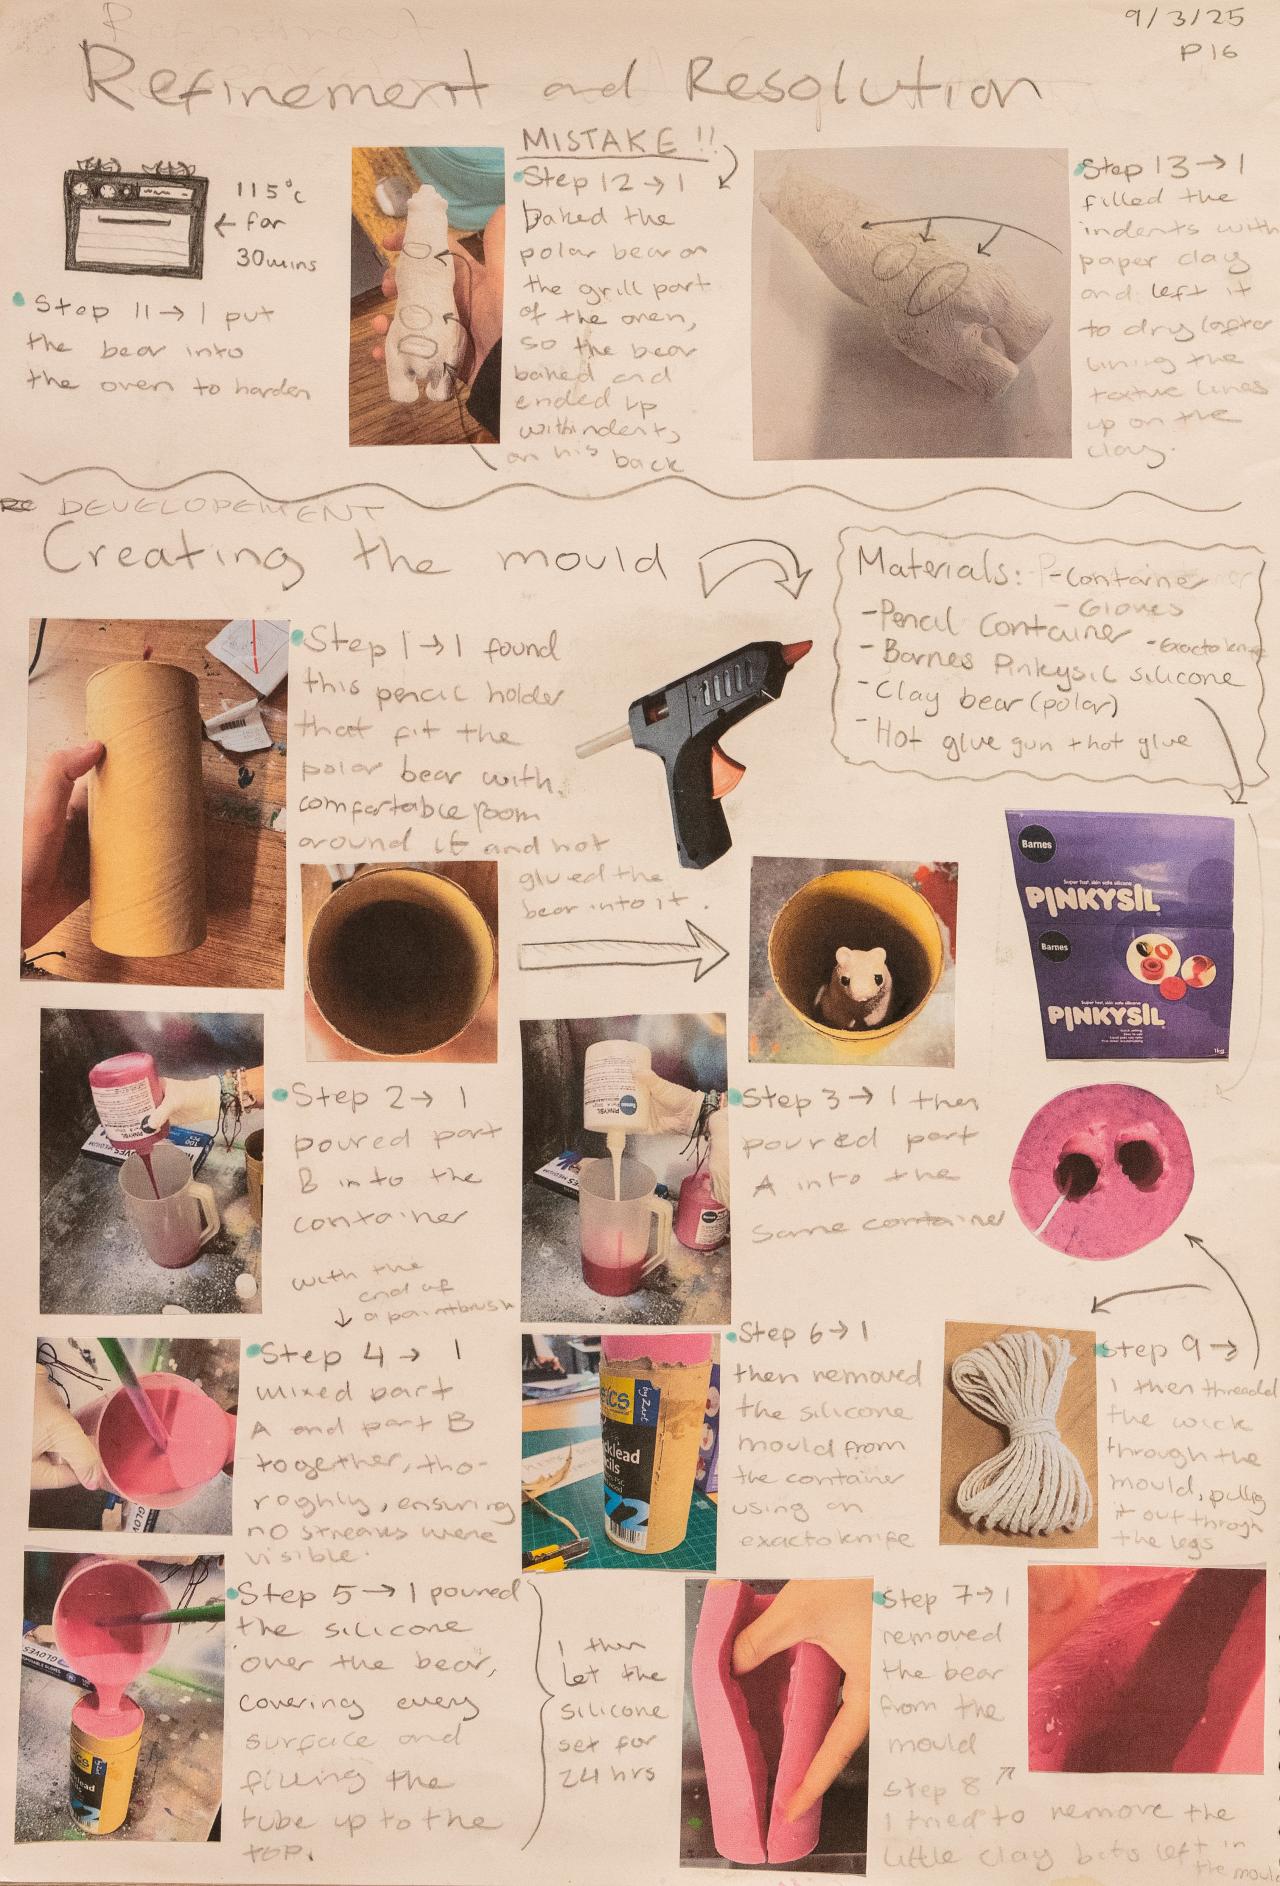 9/3/25
P16
Refinement and Resolution
115°c
← for
30mins
Step 11 → I put
the bear into
the oven to harden
MISTAKE !!
Step 12 → I
baked the
polar bear on
the grill part
of the oven,
so the bear
baked and
ended up
with indents
on his back
Step 13 → I
filled the
indents with
paper clay
and left it
to dry (after
lining the
textue lines
up on the
clay.
DEVELOPEMENT
Creating the mould
Materials: - Container
- Gloves
- Pencil Container
- Exacto knife
- Barnes Pinkysil silicone
- Clay bear (polar)
- Hot glue gun + hot glue
Step 1 → I found
this pencil holder
that fit the
polar bear with
comfortable room
around it and hot
glued the
bear into it.
Barnes
Super fast, skin safe silicone
PINKYSIL
Barnes
Super fast, skin safe silicone
PINKYSIL
1kg
Step 2 → I
poured part
B into the
container
Step 3 → I then
poured part
A into the
same container
with the
end of
a paintbrush
Step 4 → I
mixed part
A and part B
together, tho-
roghly, ensuring
no streaks were
visible.
Step 5 → I poured
the silicone
over the bear,
covering every
surface and
filling the
tube up to the
top.
I then
let the
silicone
set for
24 hrs
Step 6 → I
then removed
the silicone
mould from
the container
using an
exacto knife
by Zart
72
Step 7 → I
removed
the bear
from the
mould
Step 8
I tried to remove the
little clay bits left in
the mould
Step 9 →
I then threaded
the wick
through the
mould, pulling
it out throgh
the legs